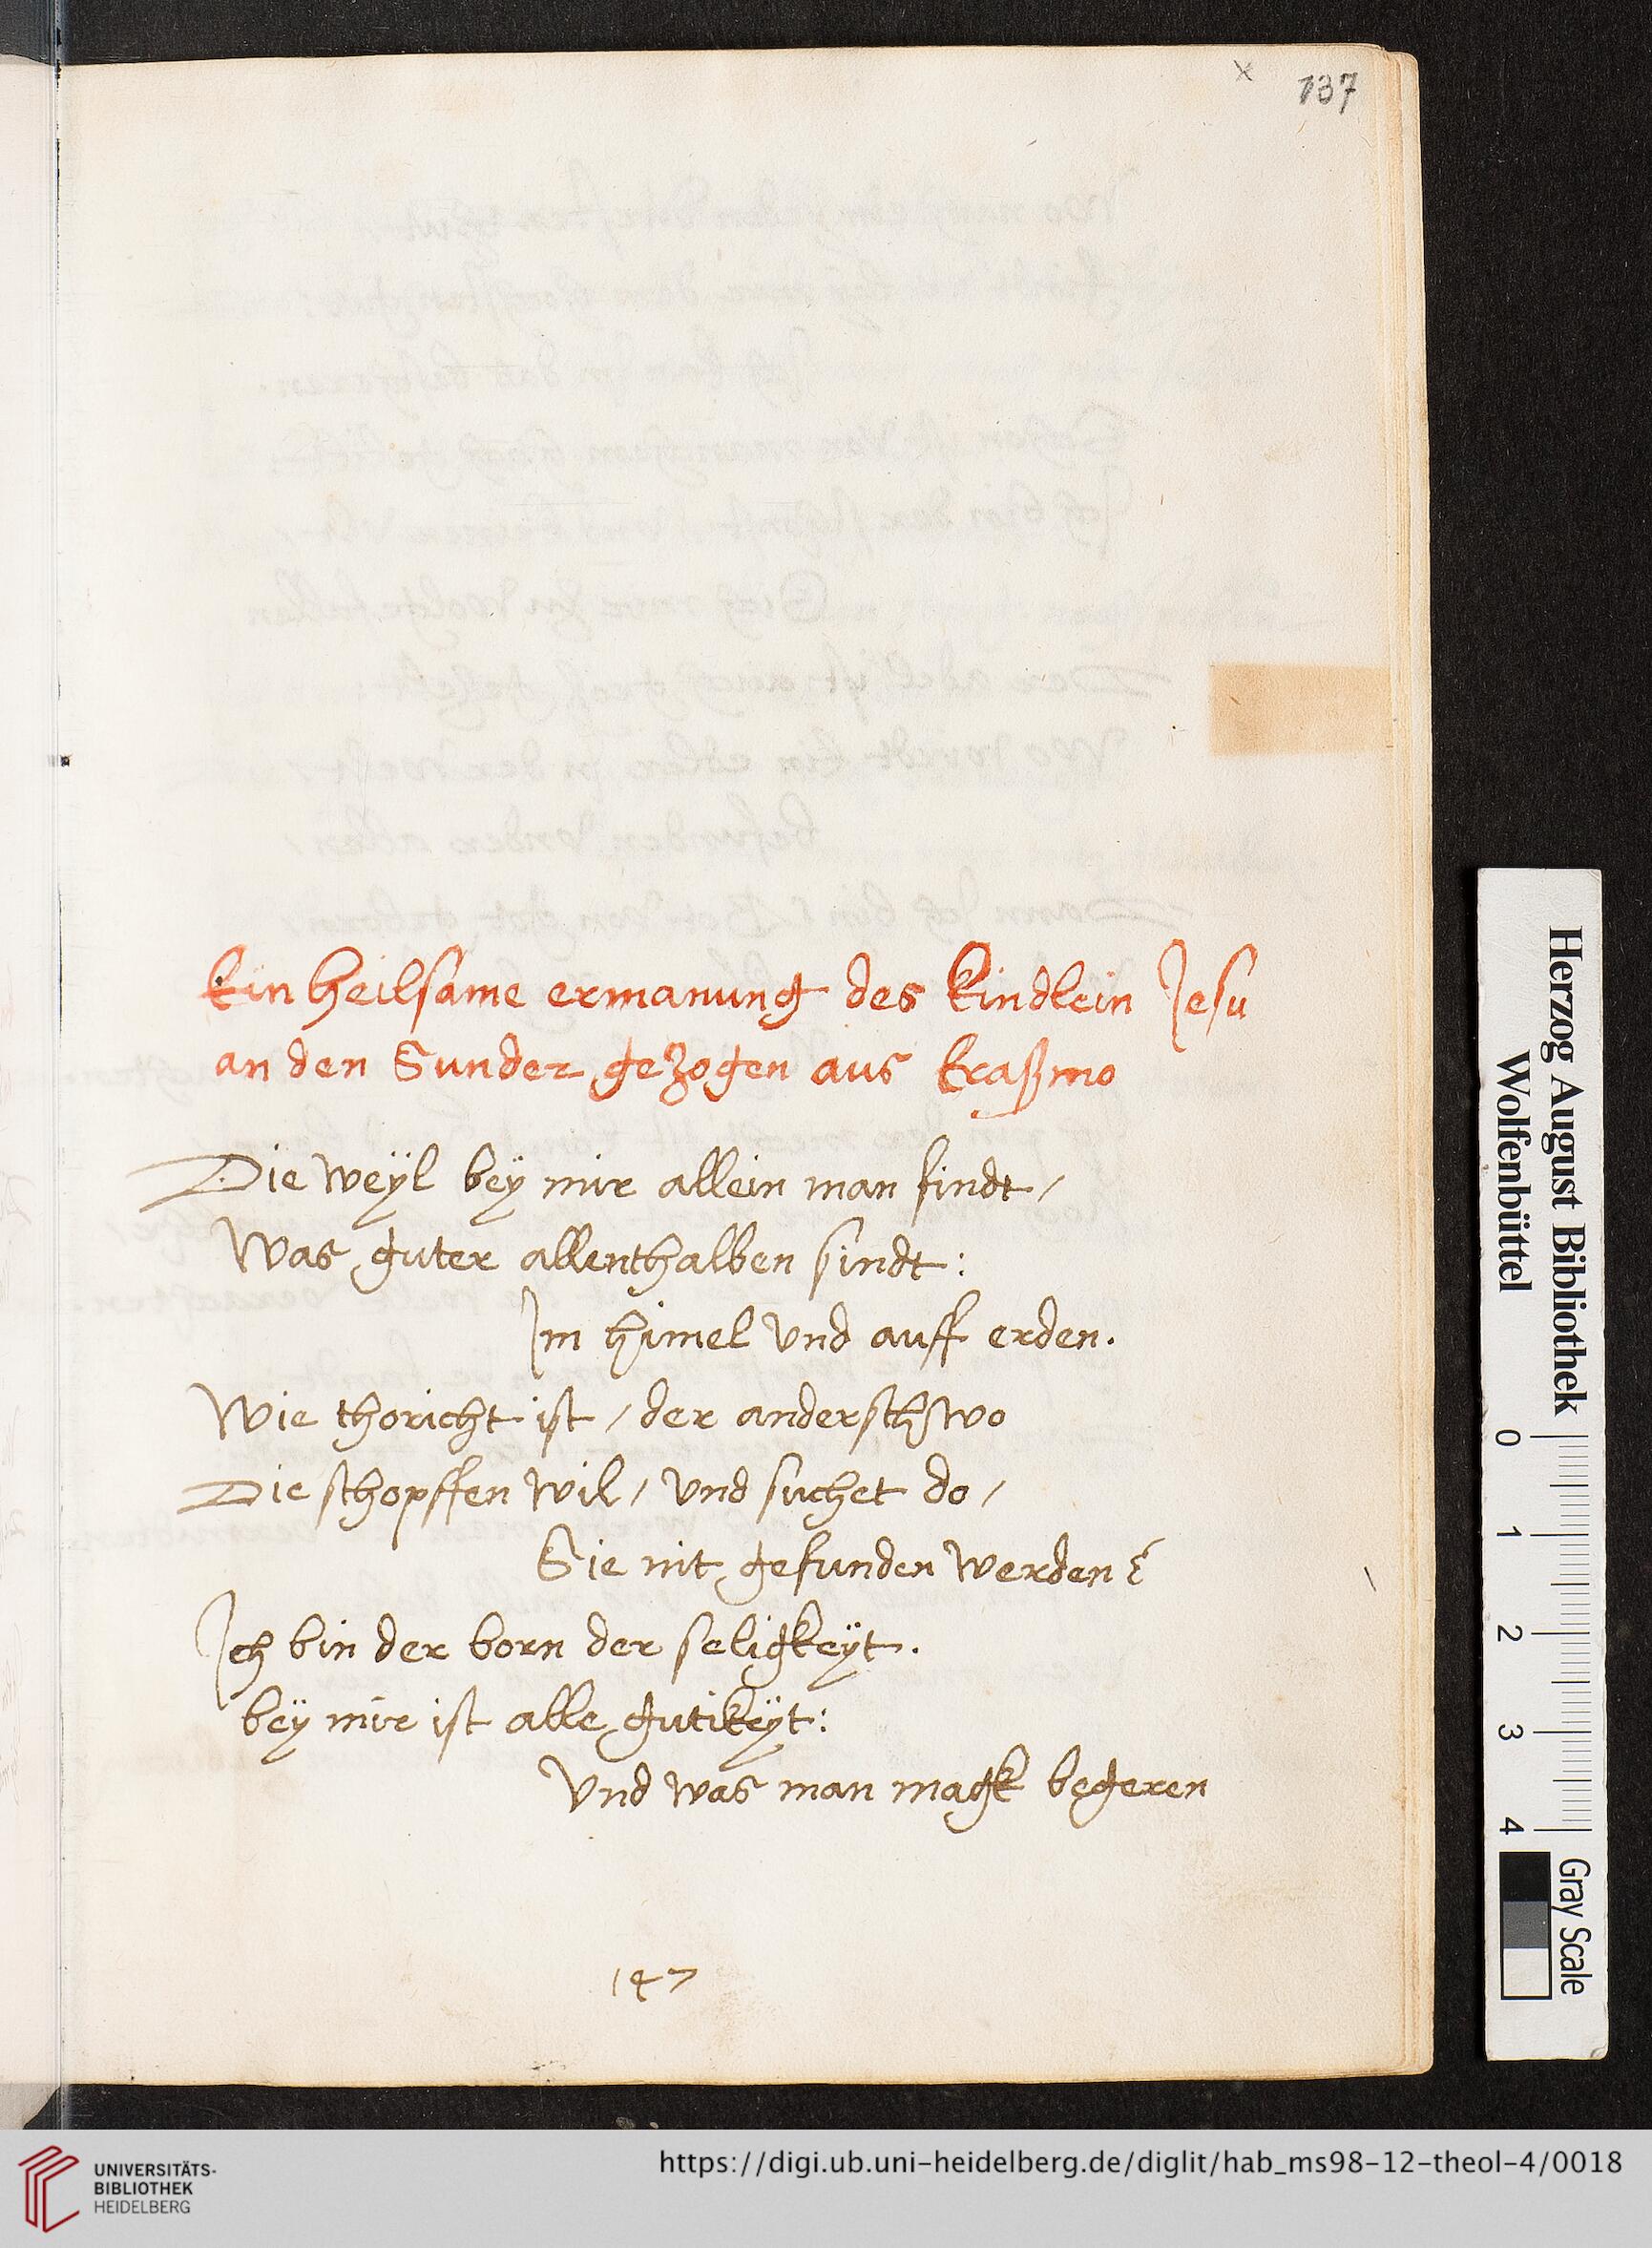 137
Ein heilsame ermanung des Kindlein Jesu
an den Sunder gezogen aus Eraßmo
Die weÿl beÿ mir allein man findt/
Was guter allenthalben sindt:
Im himel Vnd auff erden.
Wie thoricht ist/ der anderschwo
Die schopffen wil/ Vnd suchet do/
Sie nit gefunden werden?
Ich bin der born der seligkeÿt.
beÿ mir ist alle gutikeÿt:
Vnd was man magk begeren
147
Herzog August Bibliothek
Wolfenbüttel
0 1 2 3 4
Gray Scale
UNIVERSITÄTS-
BIBLIOTHEK
HEIDELBERG
https://digi.ub.uni-heidelberg.de/diglit/hab_ms98-12-theol-4/0018